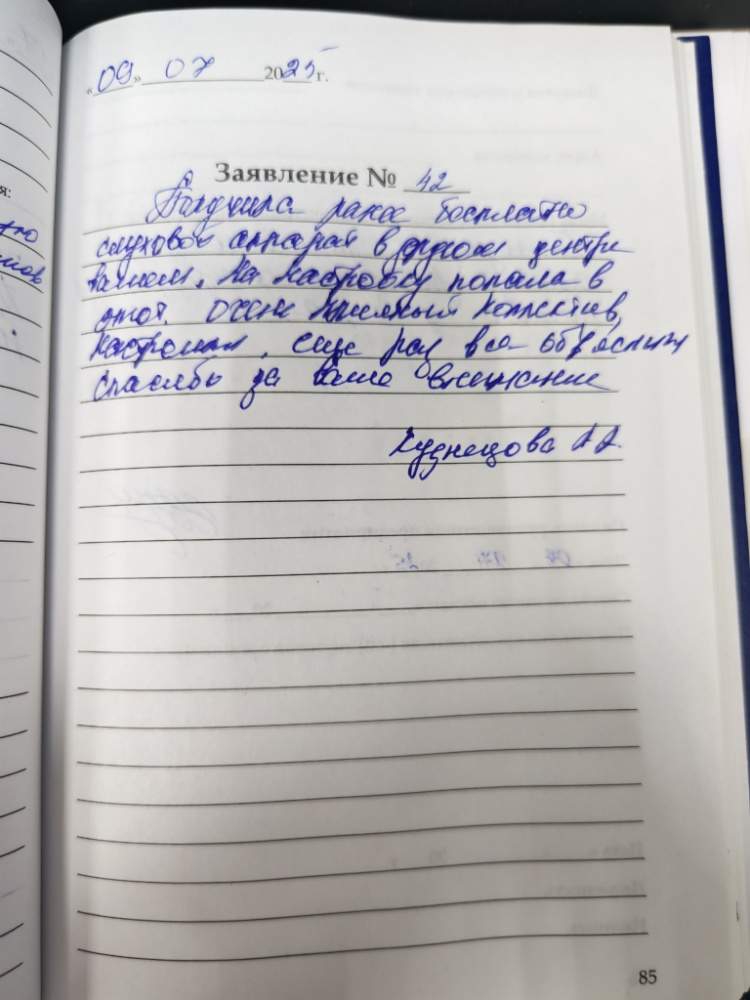 «09» 07 2025 г.
Заявление № 42
Получила ранее бесплатно
слуховой аппарат в другом центре
вашем. На настройку попала в
этот. Очень приятный коллектив,
настроили, еще раз все объяснили
спасибо за ваше внимание
Кузнецова А.А.
85